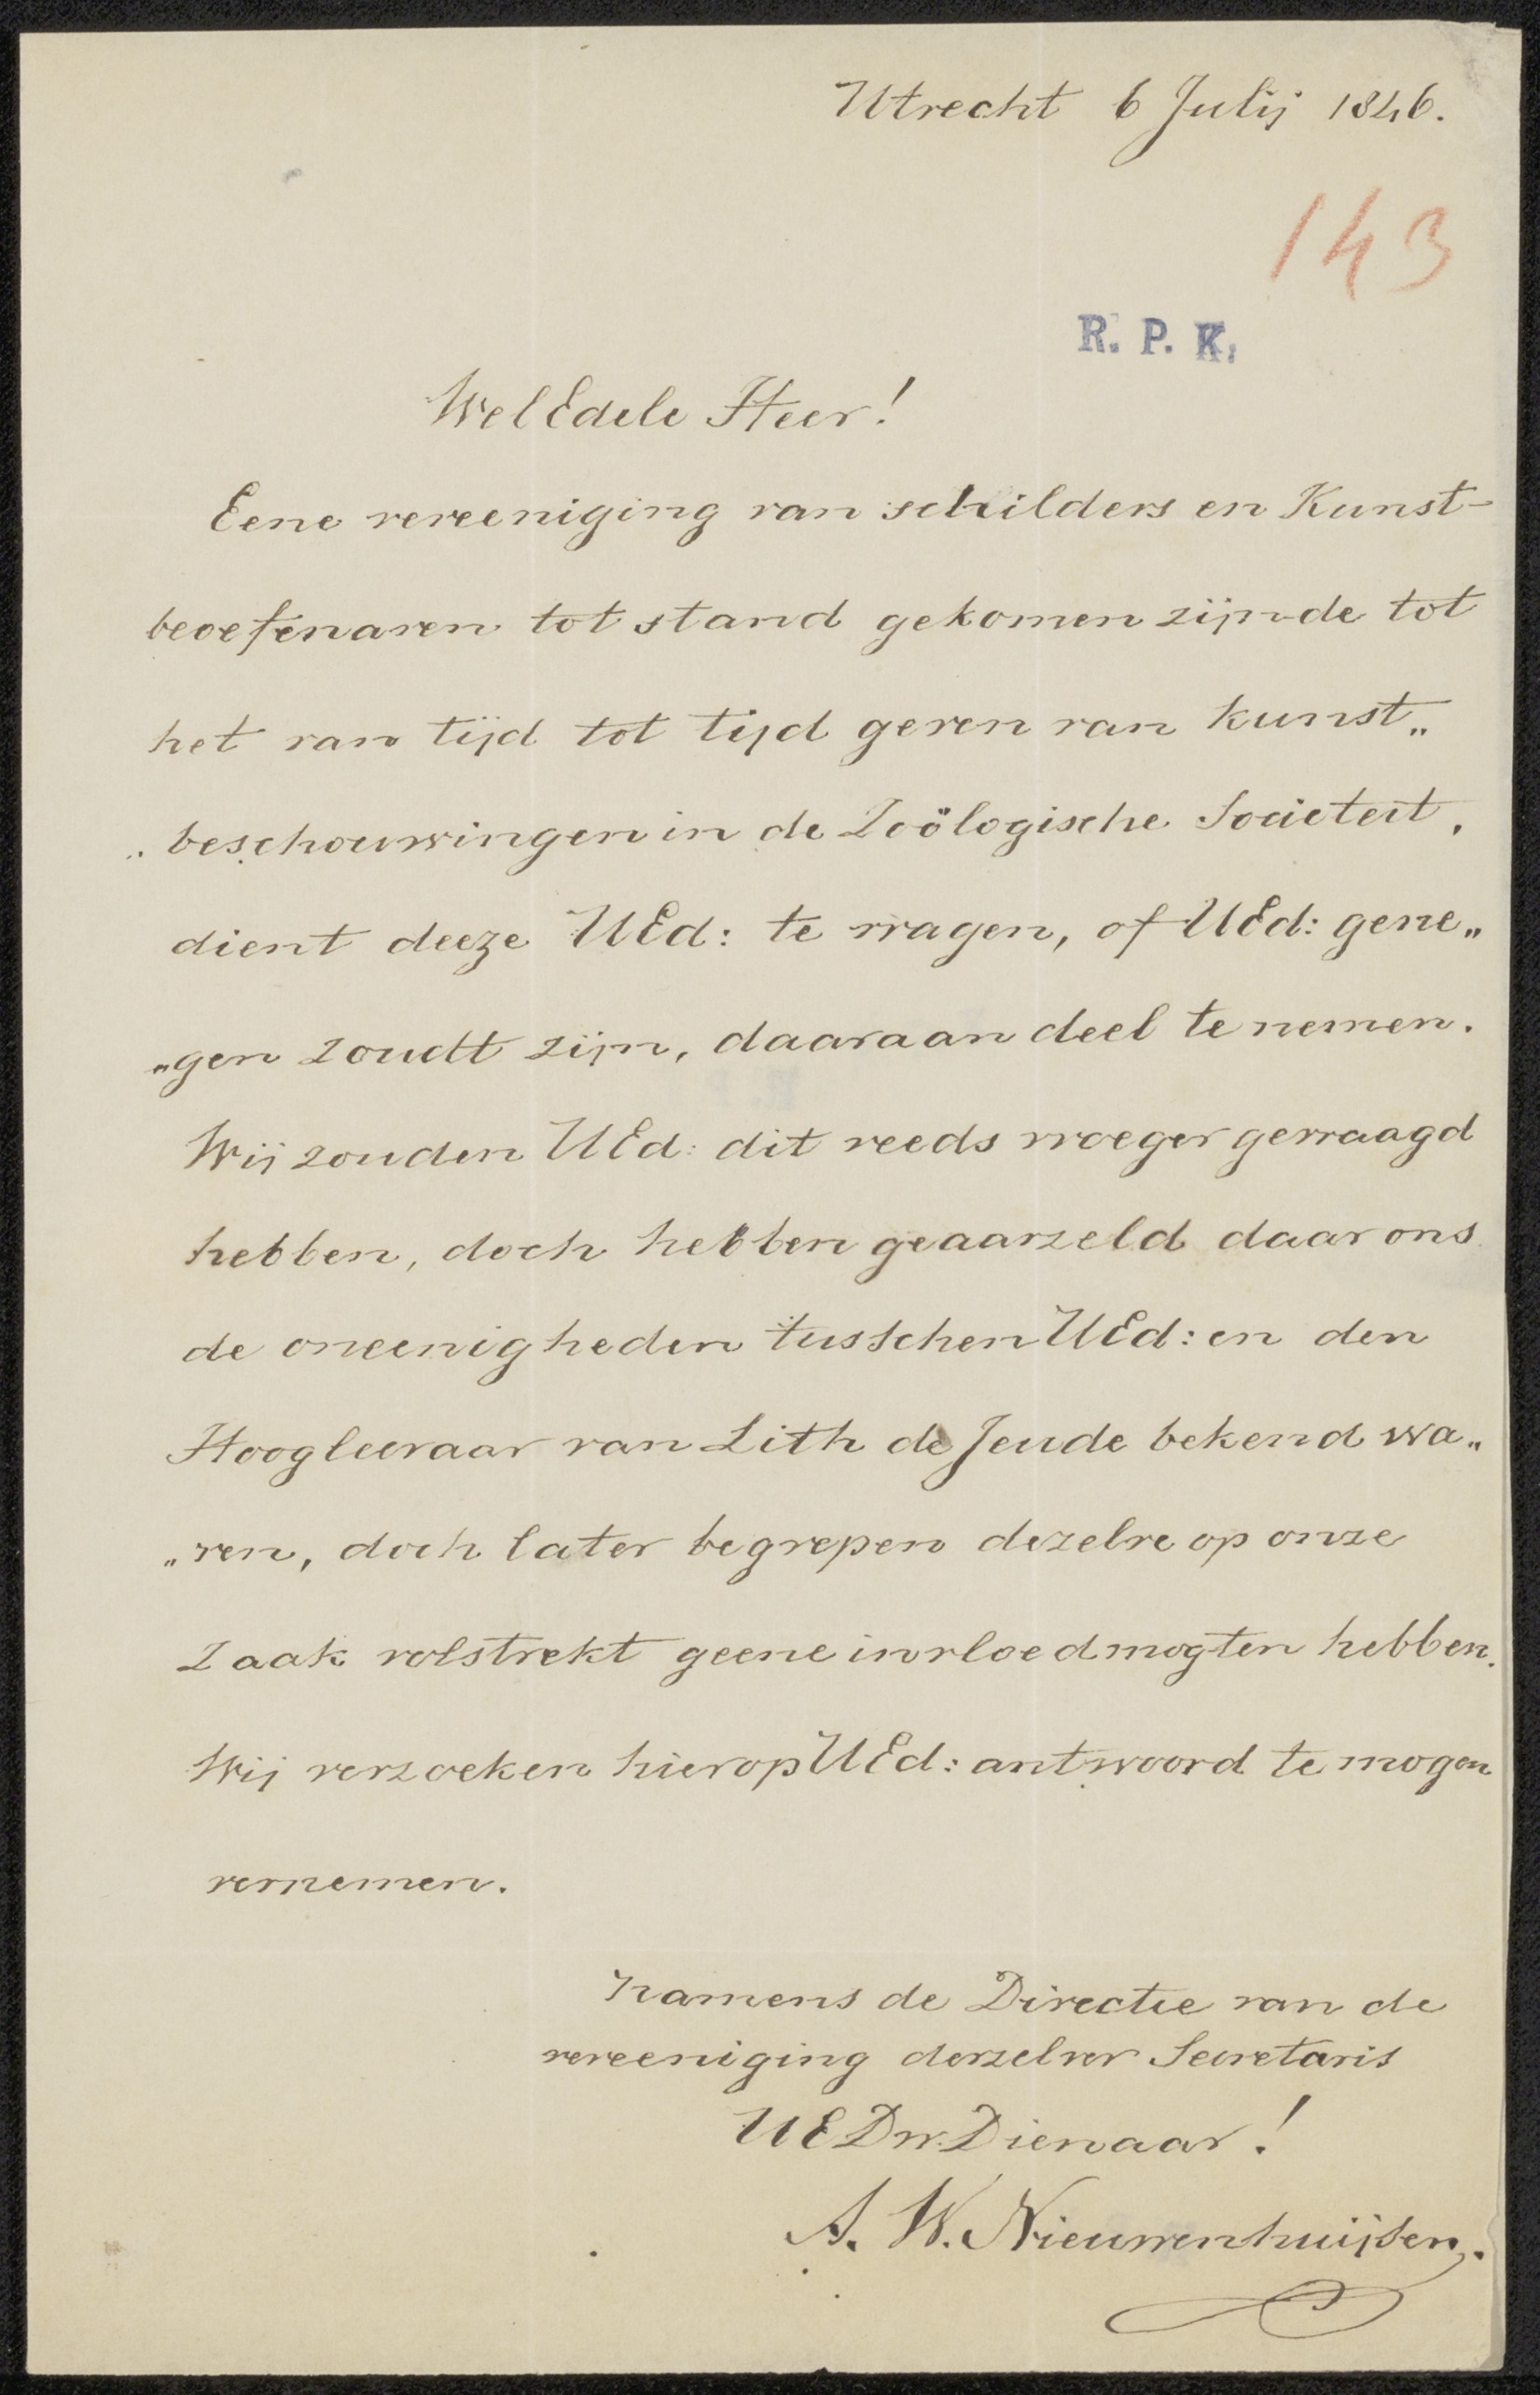 Utrecht 6 Julij 1846.
143
R. P. K.
WelEdele Heer!
Eene vereeniging van schilders en Kunst-
beoefenaren tot stand gekomen zijnde tot
het van tijd tot tijd geven van kunst„
„beschouwingen in de Zoölogische Societeit,
dient deeze UEd: te vragen, of UEd: gene„
„gen zoudt zijn, daaraan deel te nemen.
Wij zouden UEd: dit reeds vroeger gevraagd
hebben, doch hebben geaarzeld daar ons
de oneenigheden tusschen UEd: en den
Hoogleeraar van Lith de Jeude bekend wa„
„ren, doch later begrepen dezelve op onze
zaak volstrekt geene invloed mogten hebben.
Wij verzoeken hierop UEd: antwoord te mogen
vernemen.
Namens de Directie van de
vereeniging derzelver Secretaris
UEDw. Dienaar!
A. W. Nieuwenhuijsen.